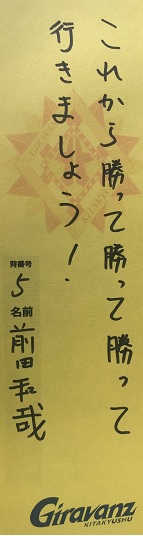 これから勝って勝って勝って
行きましょう!
背番号 5 名前 前田和哉
Giravanz
KITAKYUSHU